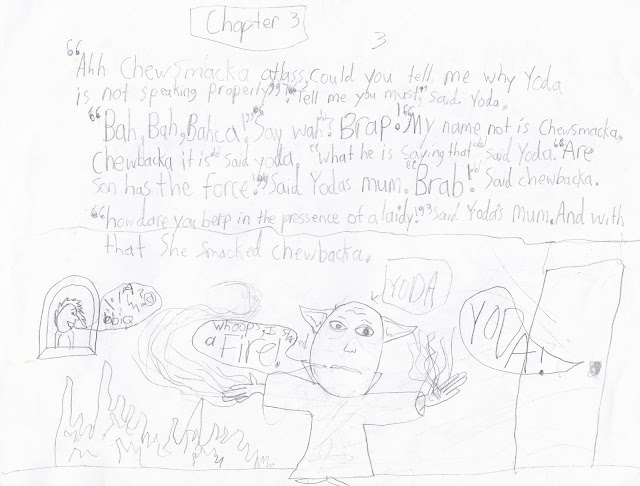 Chapter 3
3
"Ahh Chewsmacka atlass, could you tell me why Yoda
is not speaking properly"?" "Tell me you must" said Yoda.
"Bah, Bah, Bahca!" "Say wah"! Brap!" "My name not is Chewsmacka,
Chewbacka it is" said yoda. "what he is saying that" said Yoda. "Are
son has the force!" Said Yodas mum. "Brab!" Said chewbacka.
"how dare you berp in the pressence of a laidy!" said Yoda's mum. And with
that She smacked chewbacka.
YODA
whoops, I
a Fire!
YODA!